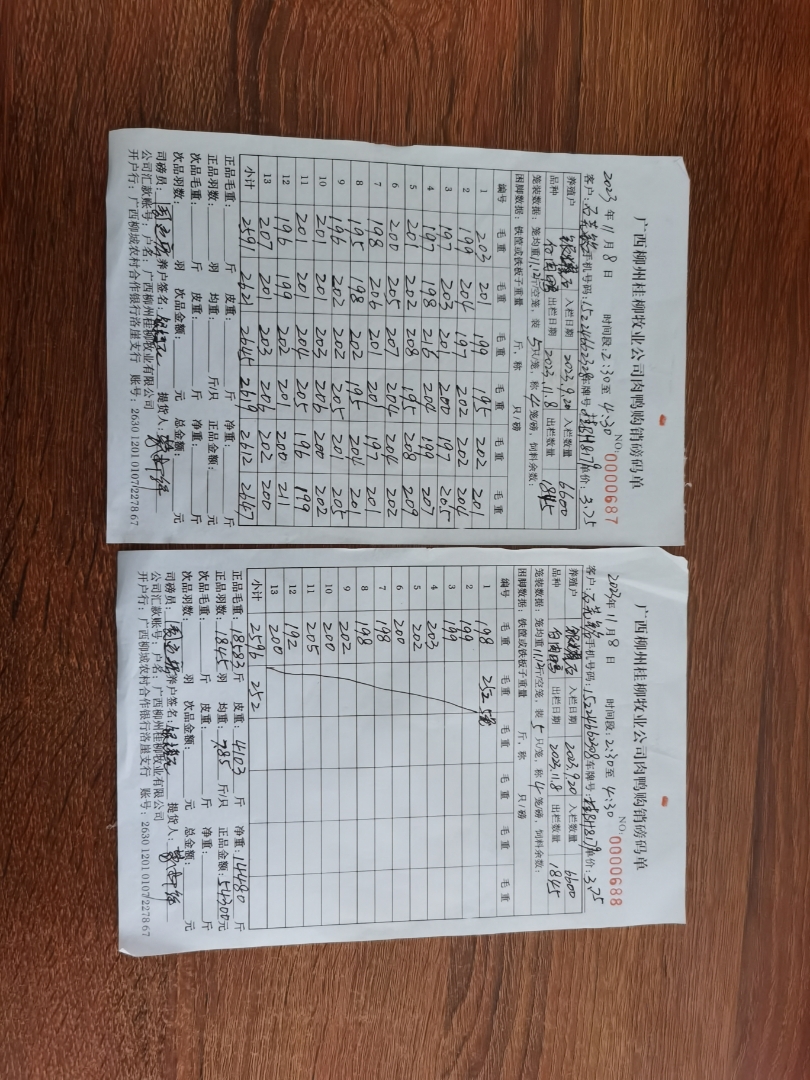 广西柳州桂柳牧业公司肉鸭购销磅码单
NO: 0000687
2023 年 11 月 8 日 时间段: 2:30 至 4:30
客户: 手机号码: 15224662328 车牌号: 单价: 3.75
养殖户 入栏日期 2023.9.20 入栏数量 6600
品种 出栏日期 2023.11.8 出栏数量 1845
笼装数据: 笼均重 11.12 斤/空笼, 装 5 只/笼, 称 4 笼/磅, 饲料余数:
困脚数据: 铁镫或铁板子重量 斤, 称 只/磅
编号 毛重 毛重 毛重 毛重 毛重 毛重
1 203 201 199 195 202 201
2 199 204 197 202 202 204
3 197 203 201 200 197 205
4 197 198 216 204 199 207
5 201 202 208 195 208 209
6 200 205 207 204 204 202
7 198 206 201 201 197 201
8 195 198 202 195 204 201
9 196 202 202 205 201 205
10 201 201 203 206 200 202
11 201 201 204 205 196 199
12 196 199 202 201 200 211
13 207 201 203 206 202 200
小计 2591 2621 2645 2619 2612 2647
正品毛重: 斤 皮重: 斤 净重: 斤
正品羽数: 羽 均重: 斤/只 正品金额: 元
次品毛重: 斤 皮重: 斤 净重: 斤
次品羽数: 羽 次品金额: 元 总金额: 元
司磅员: 养户签名: 提货人:
公司汇款账号: 户名: 广西柳州桂柳牧业有限公司
开户行: 广西柳城农村合作银行洛崖支行 账号: 2630 1201 0107/2278 67
广西柳州桂柳牧业公司肉鸭购销磅码单
NO: 0000688
2023 年 11 月 8 日 时间段: 2:30 至 4:30
客户: 手机号码: 车牌号: 单价: 3.75
养殖户 入栏日期 2023.9.20 入栏数量 6600
品种 出栏日期 2023.11.8 出栏数量 1845
笼装数据: 笼均重 斤/空笼, 装 5 只/笼, 称 4 笼/磅, 饲料余数:
困脚数据: 铁镫或铁板子重量 斤, 称 只/磅
编号 毛重 毛重 毛重 毛重 毛重 毛重
1 198 252 5笼
2 199
3 199
4 203
5 202
6 200
7 198
8 198
9 202
10 200
11 205
12 192
13 200
小计 2596 252
正品毛重: 18583 斤 皮重: 4103 斤 净重: 14480 斤
正品羽数: 1845 羽 均重: 7.85 斤/只 正品金额: 54300 元
次品毛重: 斤 皮重: 斤 净重: 斤
次品羽数: 羽 次品金额: 元 总金额: 元
司磅员: 养户签名: 提货人:
公司汇款账号: 户名: 广西柳州桂柳牧业有限公司
开户行: 广西柳城农村合作银行洛崖支行 账号: 2630 1201 0107/2278 67